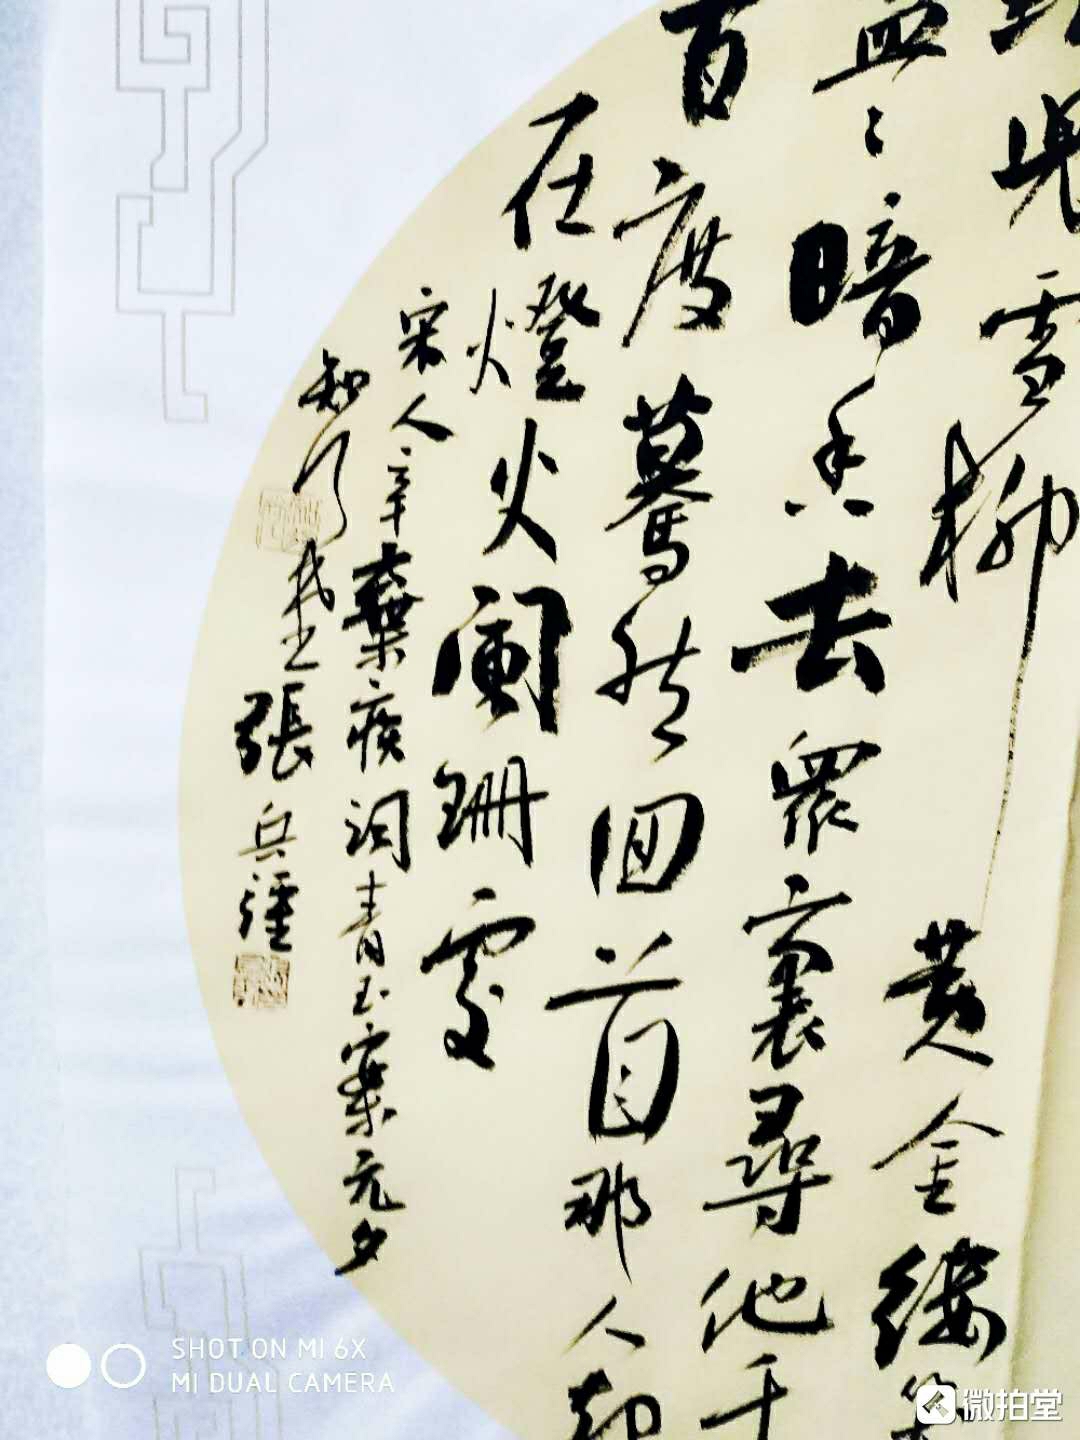 蛾兒雪柳黃金縷笑
盈〻暗香去眾裏尋他千
百度驀然回首那人却
在燈火闌珊處
宋人辛棄疾詞青玉案元夕
知行堂張兵疆
SHOT ON MI 6X
MI DUAL CAMERA
微拍堂